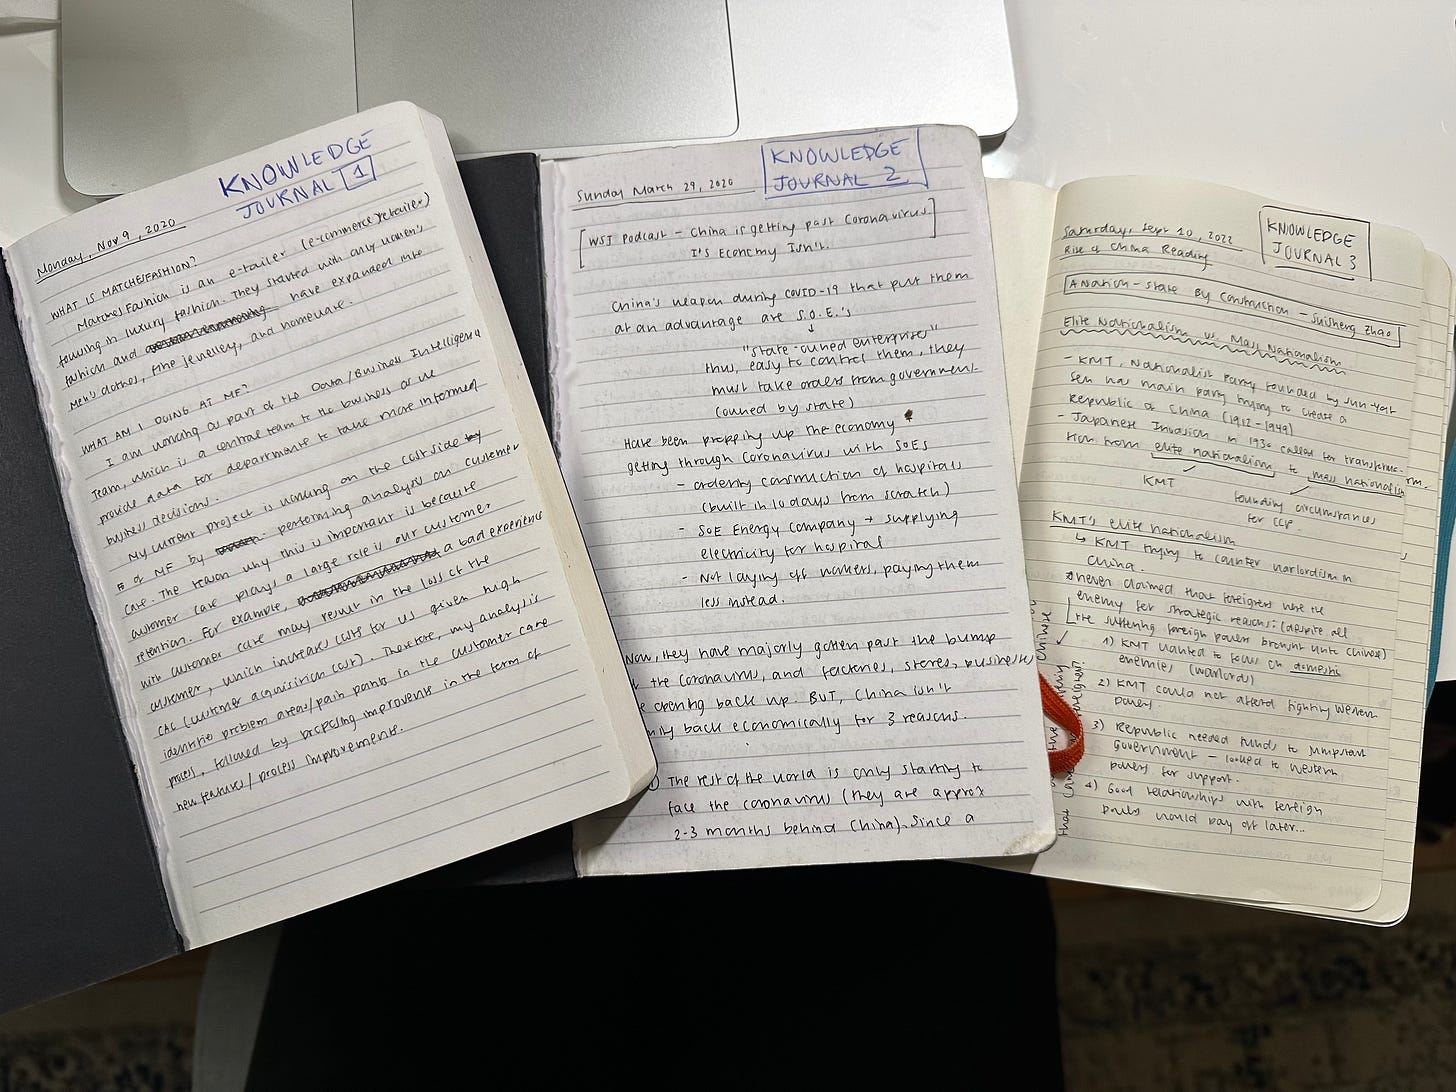 KNOWLEDGE
JOURNAL 1
Monday, Nov 9, 2020
WHAT IS MATCHESFASHION?
MatchesFashion is an e-tailer (e-commerce retailer)
focusing in luxury fashion. They started with only women's
fashion and have expanded into
men's clothes, fine jewellery, and homeware.
WHAT AM I DOING AT MF?
I am working as part of the Data/Business Intelligence
Team, which is a central team to the business as we
provide data for departments to take more informed
business decisions.
My current project is working on the cost side
of MF by performing analysis on customer
care. The reason why this is important is because
customer care plays a large role is our customer
retention. For example, a bad experience
with customer care may result in the loss of the
customer, which increases costs for us given high
CAC (customer acquisition cost). Therefore, my analysis is
identify problem areas/pain points in the customer care
process, followed by proposing improvements in the form of
new features/process improvements.
KNOWLEDGE
JOURNAL 2
Sunday March 29, 2020
[WSJ Podcast - China is getting past Coronavirus.
It's Economy Isn't.]
China's weapon during COVID-19 that put them
at an advantage are S.O.E.'s
↓
"state-owned enterprises"
thus, easy to control them, they
must take orders from government
(owned by state)
Have been propping up the economy &
getting through Coronavirus with SOEs
- ordering construction of hospitals
(built in 10 days from scratch)
- SOE Energy Company → supplying
electricity for hospital
- Not laying off workers, paying them
less instead.
Now, they have majorly gotten past the bump
the coronavirus, and factories, stores, businesses
opening back up. BUT, China isn't
back economically for 3 reasons.
The rest of the world is only starting to
face the coronavirus (they are approx
2-3 months behind China). Since a
KNOWLEDGE
JOURNAL 3
Saturday, Sept 10, 2022
Rise of China Reading
A Nation-State By Construction - Suisheng Zhao
Elite Nationalism vs. Mass Nationalism
- KMT, Nationalist Party founded by Sun-Yat
Sen was main party trying to create a
Republic of China (1912-1949)
- Japanese Invasion in 1930 called for transforma-
tion from elite nationalism to mass nationalism
KMT
founding circumstances
for CCP
KMT's elite nationalism
↳ KMT trying to counter warlordism in
China.
never claimed that foreigners were the
enemy for strategic reasons: (despite all
the suffering foreign powers brought unto Chinese)
1) KMT wanted to focus on domestic
enemies (warlords)
2) KMT could not afford fighting western
powers
3) Republic needed funds to jumpstart
government - looked to western
powers for support.
4) Good relationships with foreign
powers would pay off later...